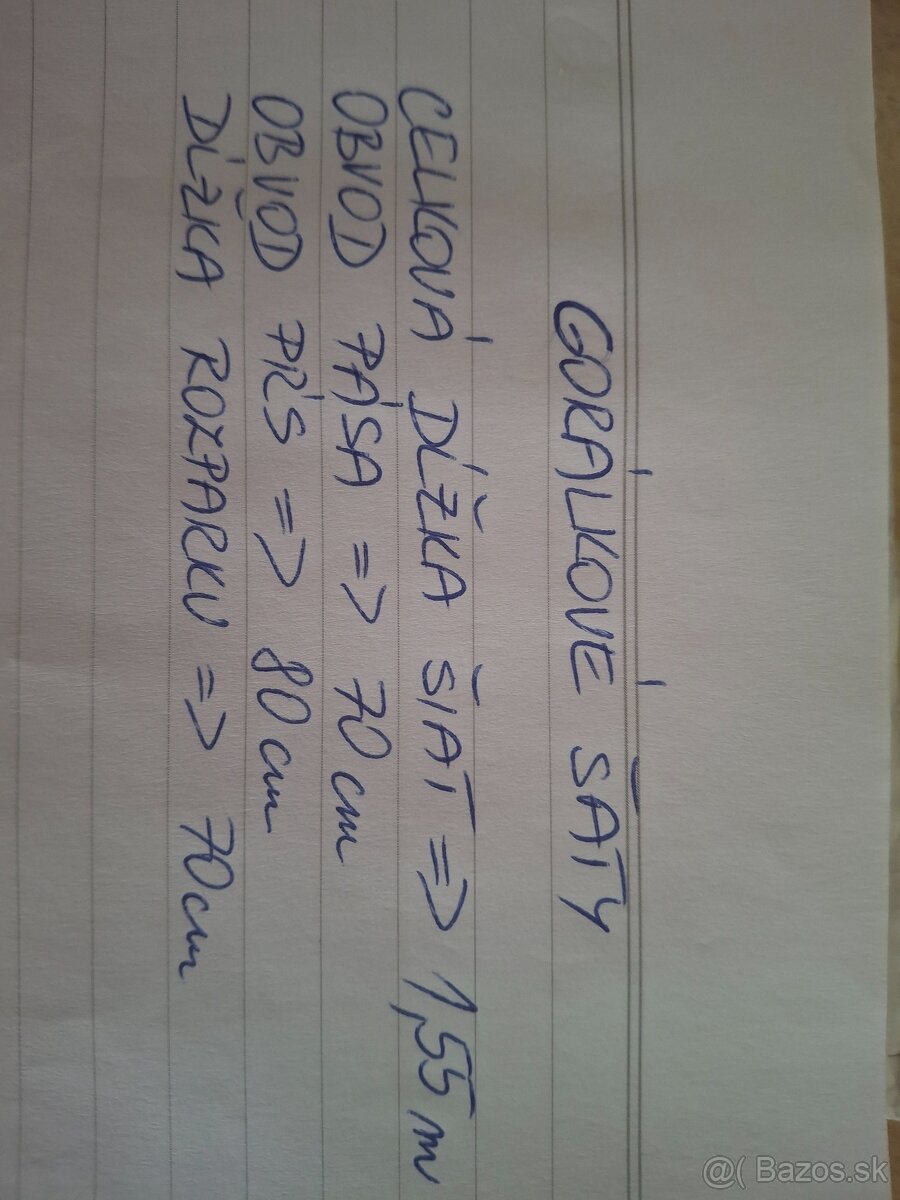 GORÁLKOVÉ ŠATY
CELKOVÁ DĹŽKA ŠIAT => 1,55 m
OBVOD PÁSA => 70 cm
OBVOD PŔS => 80 cm
DĹŽKA ROZPARKU => 70 cm
@( Bazos.sk